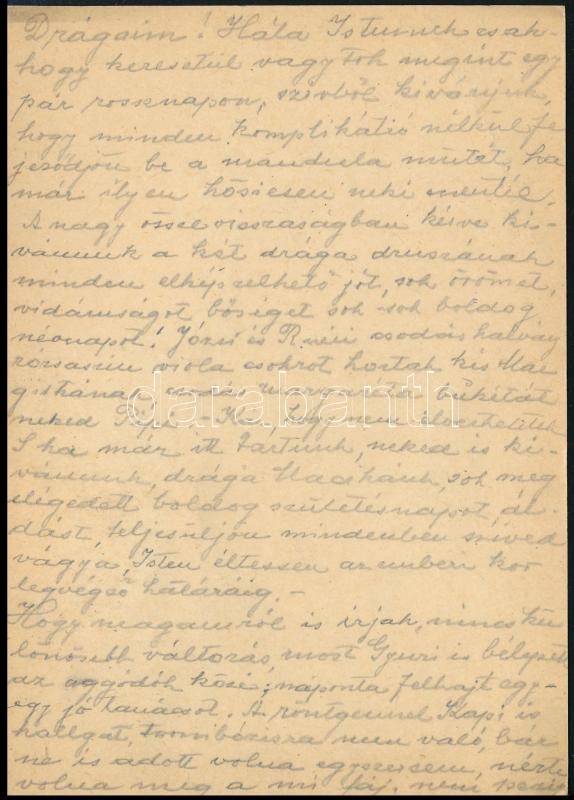 Drágáim! Hála Istennek csak-
hogy keresztül vagytok megint egy
pár rossznapon, szivből kivánjuk,
hogy minden komplikátió nélkül fe
jeződjön be a mandula mütét, ha
már ilyen hősiesen neki mentél.
A nagy összevisszaságban késve ki-
vánunk a két drága druszának
minden elképzelhető jót, sok örömet,
vidámságot bőséget sok-sok boldog
névnapot! Józsi és R néni csodás halvány
rózsaszin viola csokrot hoztak kis Ma
gitkának csodás margaréta bukétát
neked hogy nem élvezhetitek
S ha már itt tartunk, neked is ki-
vánunk, drága Macikánk, sok meg
elégedett boldog születésnapot, ál-
dást, teljesüljön mindenben szived
vágya, Isten éltessen az emberi kor
legvégső határáig.-
Hogy magamról is irjak, nincs kü
lönösebb változás, most Gyuri is bélyeg
az aggódók közé; naponta felhajt egy-
egy jó tanácsot. A röntgennel Kapi is
hallgat, trombózisra nem való, bár
ne is adott volna egyszersem,
volna meg a mi fáj, nem
darabanth